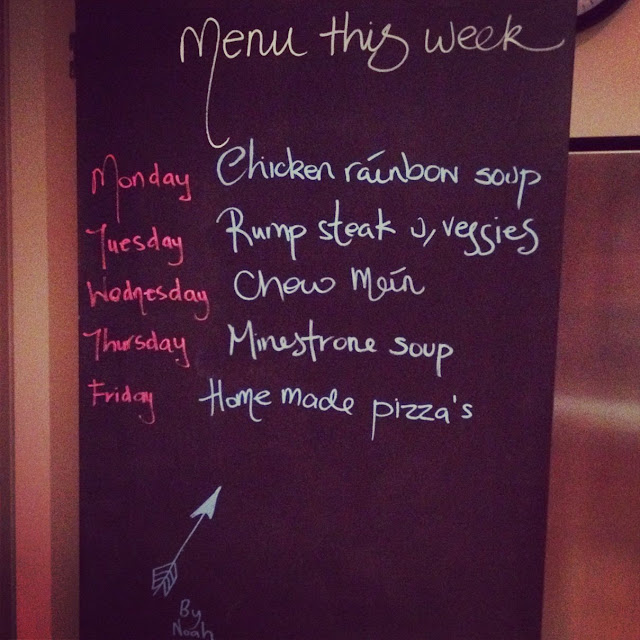 Menu this week
Monday Chicken rainbow soup
Tuesday Rump steak w/ veggies
Wednesday Chow Mein
Thursday Minestrone soup
Friday Home made pizza's
By
Noah